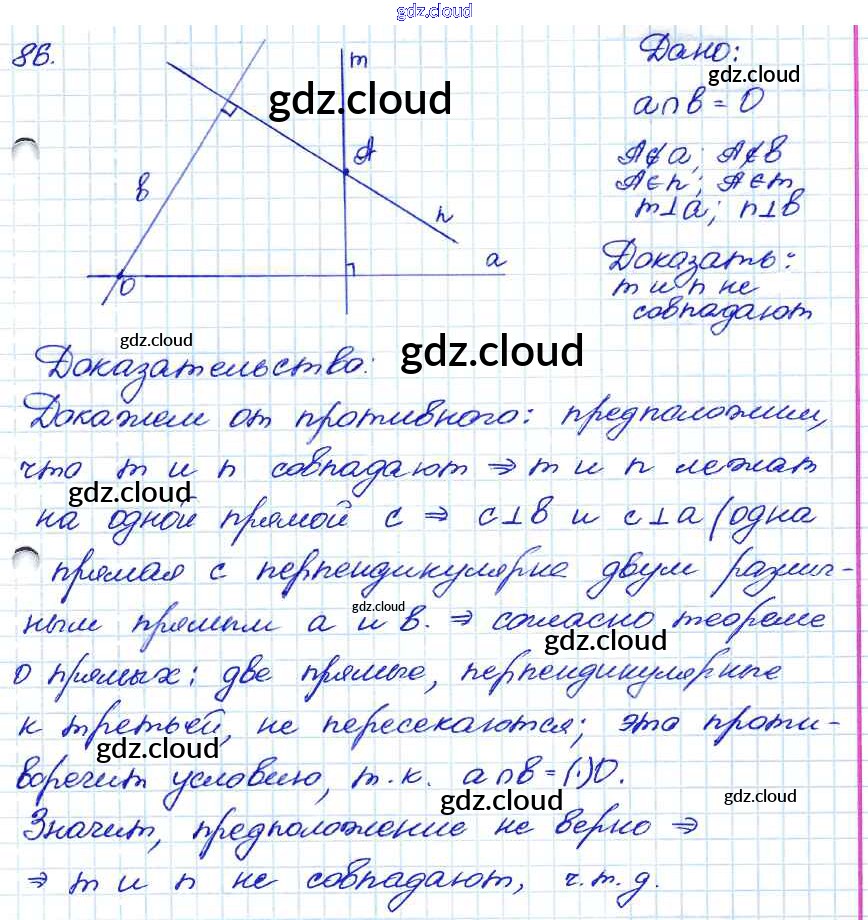 gdz.cloud
86.
m
Дано:
gdz.cloud
gdz.cloud
a∩b = O
A
A∉a; A∉b
b
A∈n; A∈m
n
m⊥a; n⊥b
a
Доказать:
O
m и n не
совпадают
gdz.cloud
gdz.cloud
Доказательство:
Докажем от противного: предположим,
что m и n совпадают ⇒ m и n лежат
gdz.cloud
на одной прямой c ⇒ c⊥b и c⊥a (одна
прямая c перпендикулярна двум различ-
gdz.cloud
ным прямым a и b. ⇒ согласно теореме
gdz.cloud
о прямых: две прямые, перпендикулярные
к третьей, не пересекаются; это проти-
gdz.cloud
воречит условию, т.к. a∩b = (·)O.
gdz.cloud
gdz.cloud
Значит, предположение не верно ⇒
⇒ m и n не совпадают, ч.т.д.